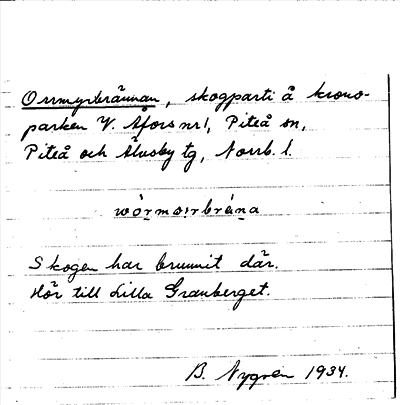 Orrmyrbrännan, skogparti å krono-
parken V. Åfors nr 1, Piteå sn,
Piteå och Älvsby tg, Norrb. l.
wòrmøṛrbrèṇa
Skogen har brunnit där.
Hör till Lilla Granberget.
B. Nygren 1934.